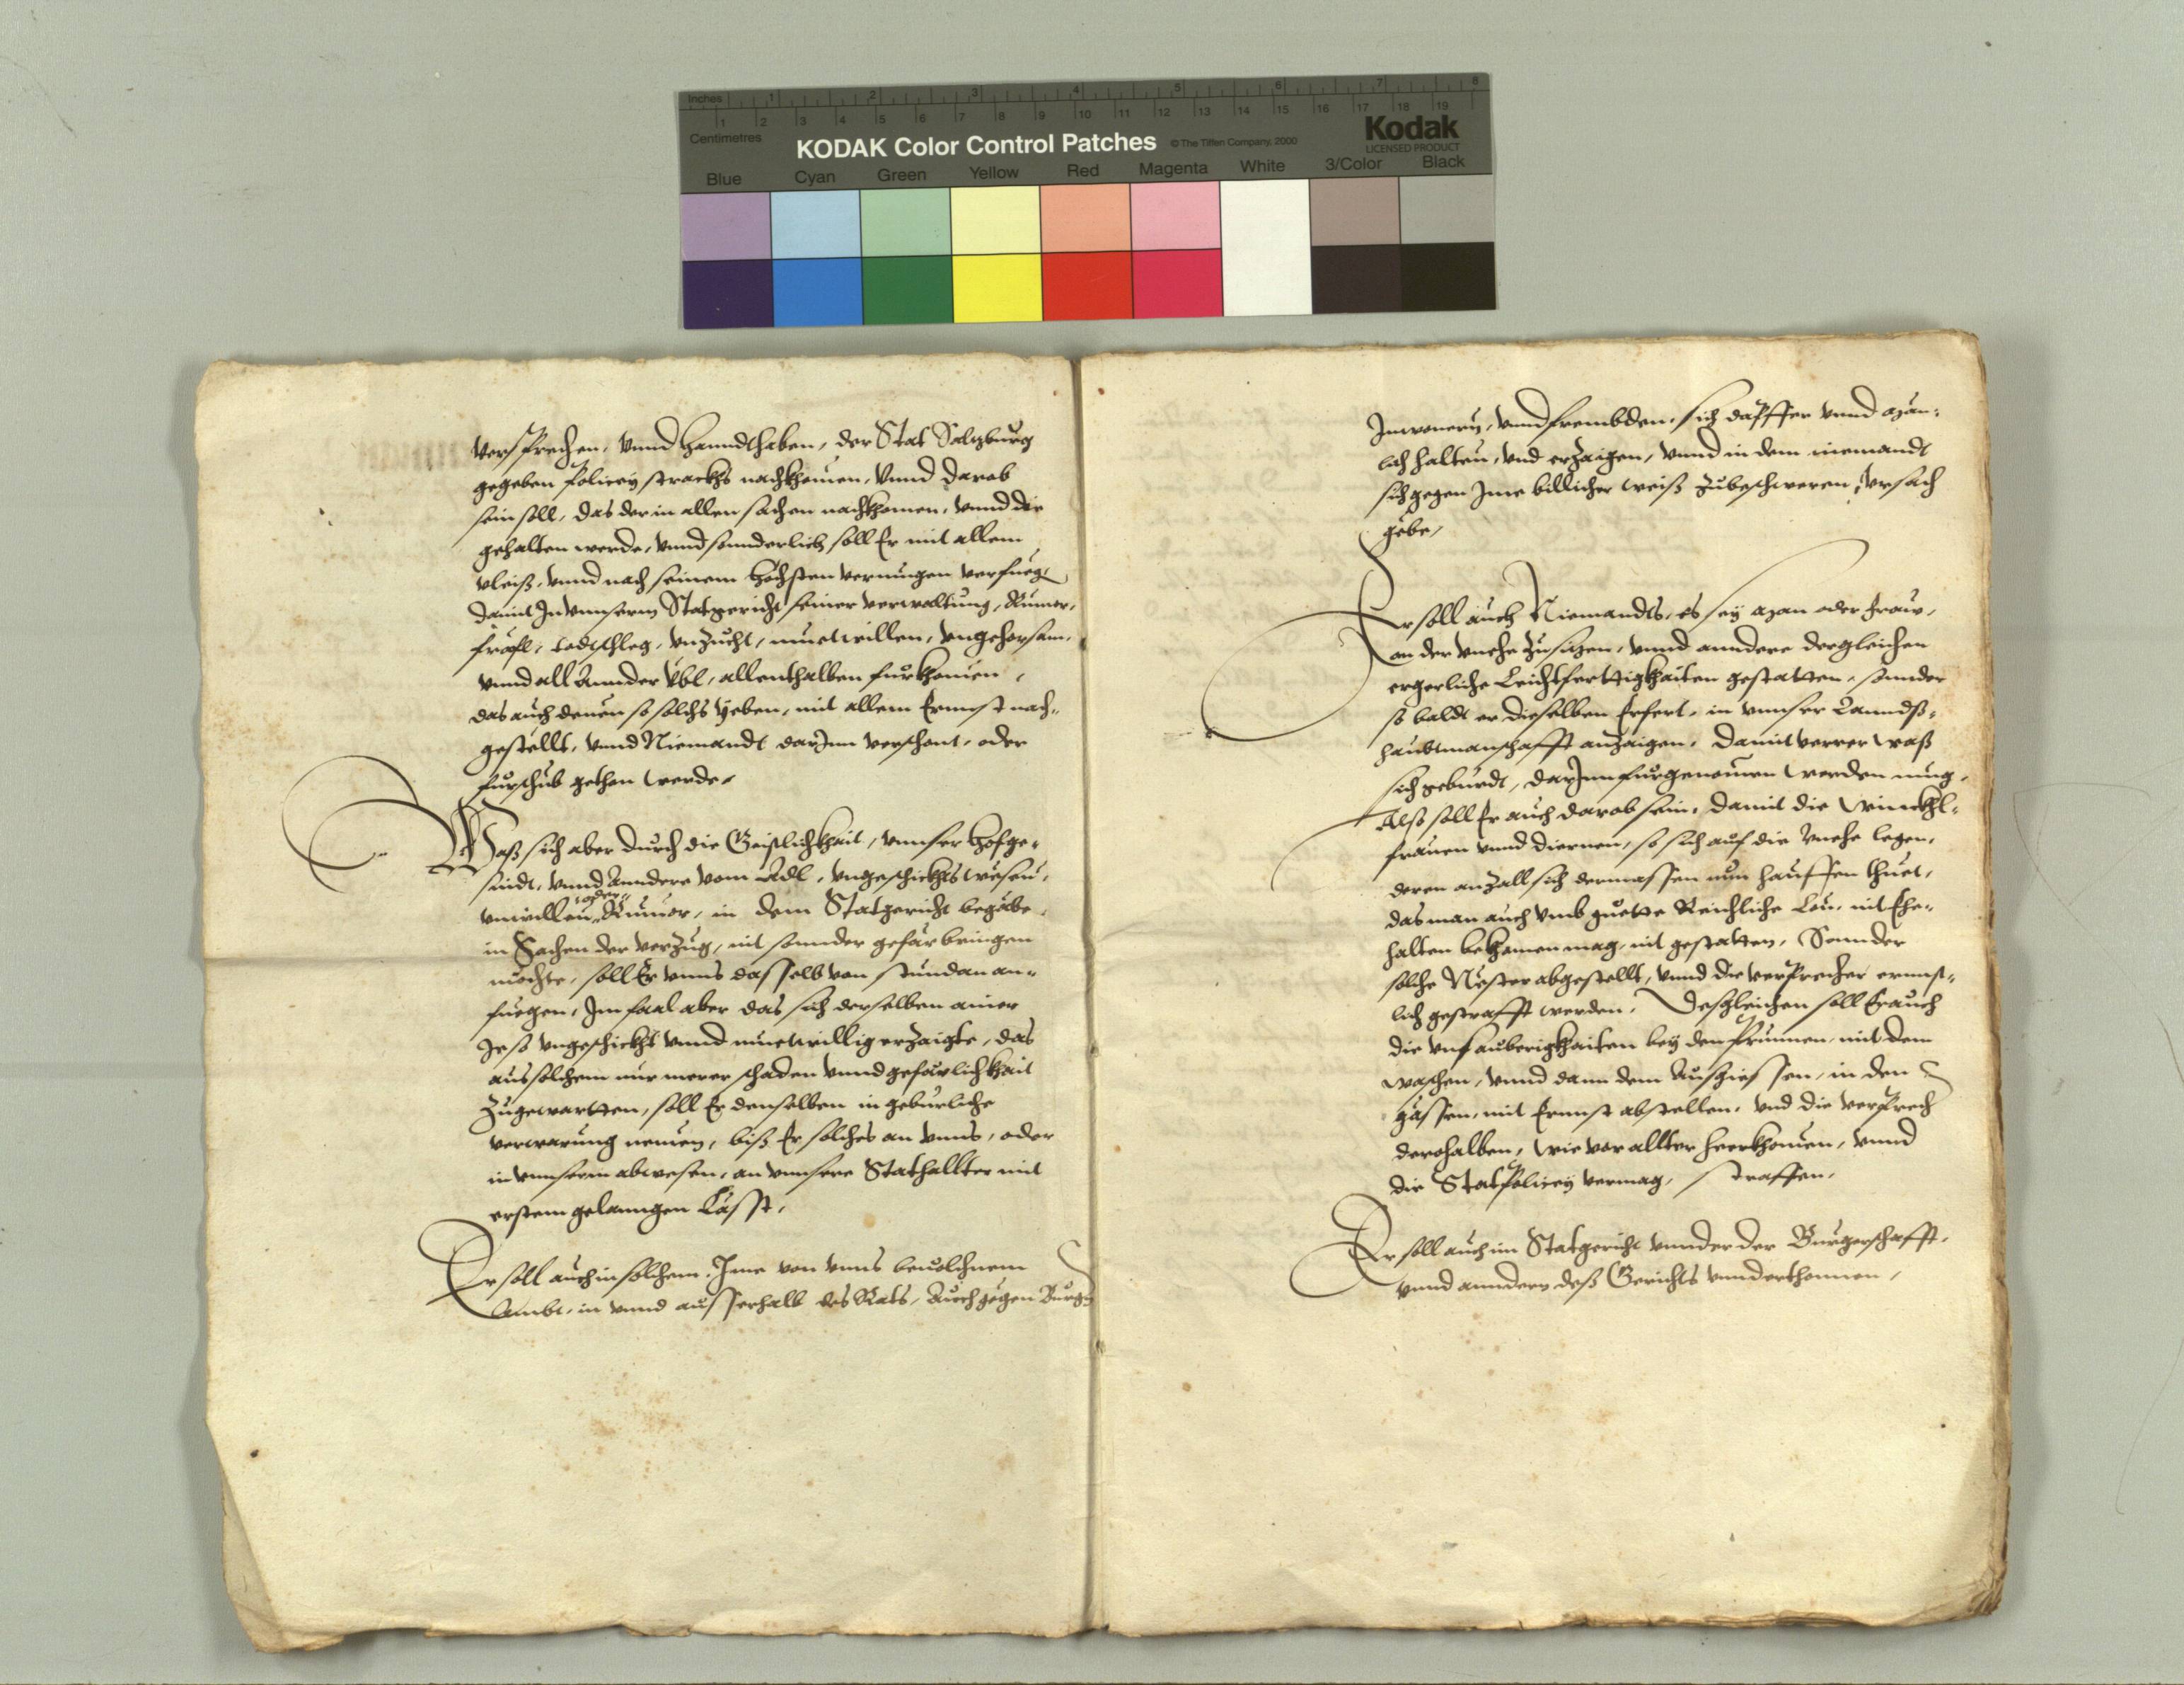 Inches 1 2 3 4 5 6 7 8
Centimetres 1 2 3 4 5 6 7 8 9 10 11 12 13 14 15 16 17 18 19
KODAK Color Control Patches © The Tiffen Company, 2000 Kodak
LICENSED PRODUCT
Blue Cyan Green Yellow Red Magenta White 3/Color Black
versprechen, vnnd hanndthaben, der Stat Salzburg
gegeben policey strackhs nachkhomen, vnnd darob
sein soll, das der in allen sachen nachkhomen, vnnd die
gehalten werde, vnnd sonnderlich soll Er mit allem
vleiß, vnnd nach seinem höchsten vermugen verfueg
damit In vnnserm Statgericht seiner verwaltung, Rumor,
fräfl, todtschleg, vnzucht, muetwillen, vngehorsam,
vnnd all Annder Übl, allenthalben fürkhomen,
das auch denen so solchs yeben, mit allem Ernnst nach-
gestellt, vnnd Niemandt darInn verschont, oder
fürschub gethan werde,
Waß sich aber durch die Geistlichkhait, vnnser hofge-
sindt, vnnd Anndere vom Adl, vngeschickhts wesen,
vnwillen, oder Rumor, in dem Statgericht begäbe,
in Sachen der verzug, nit sonnder gefär bringen
möchte, soll Er vnns dasselb von stundan an-
fuegen, Im faal aber das sich derselben ainer
Je so vngeschickht vnnd muetwillig erzaigte, das
aus solchem nur merer schaden vnnd gefärlichkhait
zugewartten, soll Er denselben in gebürliche
verwarung nemen, biß Er solches an vnns, oder
in vnnserm abwesen, an vnnsere Stathallter mit
erstem gelanngen Lässt,
Er soll auch in solchem, Ime von vnns beuolchnem
Ambt, in vnnd ausserhalb des Rats, Auch gegen Burgern
Inwonern, vnnd frembden, sich dapffer vnnd man-
lich halten, vnd erzaigen, vnnd in dem niemandt
sich gegen Ime billicher weiß zubeschweren, vrsach
gebe,
Er soll auch Niemandts, es sey man oder frau,
an der vnehe zusizen, vnnd anndere dergleichen
ergerliche Leichtferttigkhaiten gestatten, sonnder
so baldt er dieselben Erfert, in vnnser Lanndß-
haubtmanschafft anzaigen, damit verrer waß
sich gebürdt, darInn fürgenomen werden müg,
Also soll Er auch darob sein, damit die winckhl-
frauen vnnd diernen, so sich auf die vnehe legen,
deren anzall sich dermassen nun hauffen thuet,
das man auch vmb guette Reichliche Lon, nit Ehe-
halten bekhomen mag, nit gestatten, Sonnder
solche Nester abgestellt, vnnd die verprecher ernnst-
lich gestrafft werden, Desgleichen soll Er auch
die vnsauberigkhaiten bey den Prunnen, mit dem
waschen, vnnd dann dem Ausgiessen, in den
gassen, mit Ernnst abstellen, vnd die verprech
derohalben, wie vor allter heerkhomen, vnnd
die Statpolicey vermag, straffen,
Er soll auch im Statgericht vnnder der Burgerschafft,
vnnd anndern deß Gerichts vnnderthonnen,